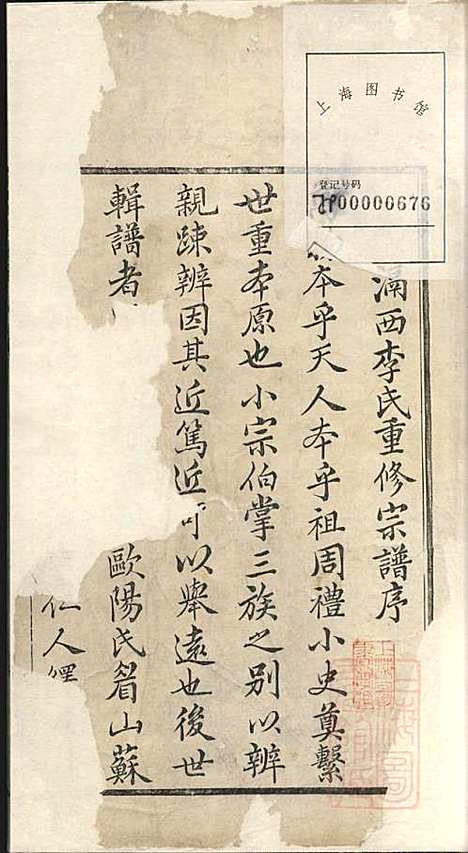 上海图书馆
登记号码
00000676
滆西李氏重修宗譜序
本乎天人本乎祖周禮小史奠繫
世重本原也小宗伯掌三族之别以辨
親踈辨因其近篤近可以舉遠也後世
輯譜者
歐陽氏眉山蘇
仁人